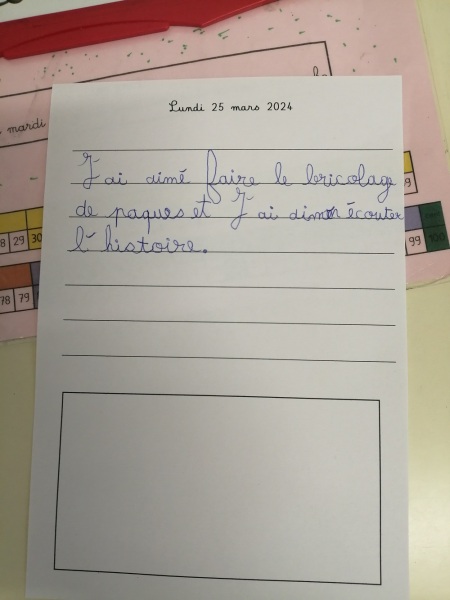 mardi
Lundi 25 mars 2024
J'ai aimé faire le bricolage
de paques et J'ai aimer écouter
l'histoire.
9
8 29 30
99 100
78 79